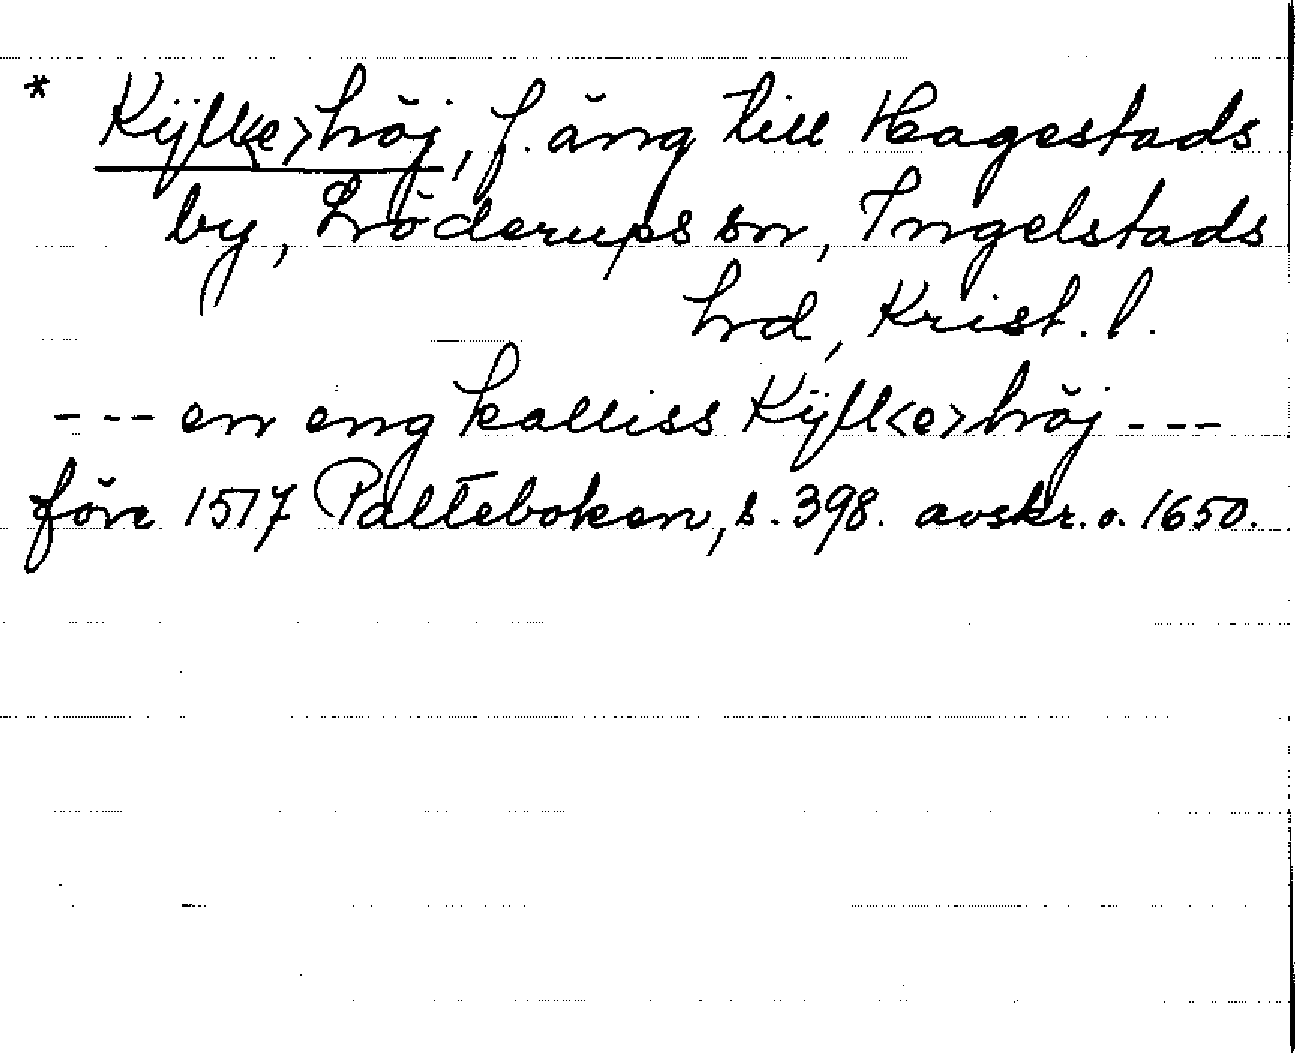 * Kÿfl<e>höj, f. äng till Hagestads
by, Löderups sn, Ingelstads
hd, Krist. l.
--- en eng kalliss Kÿfl<e>höj ---
före 1517 Palteboken, s. 398. avskr. o. 1650.